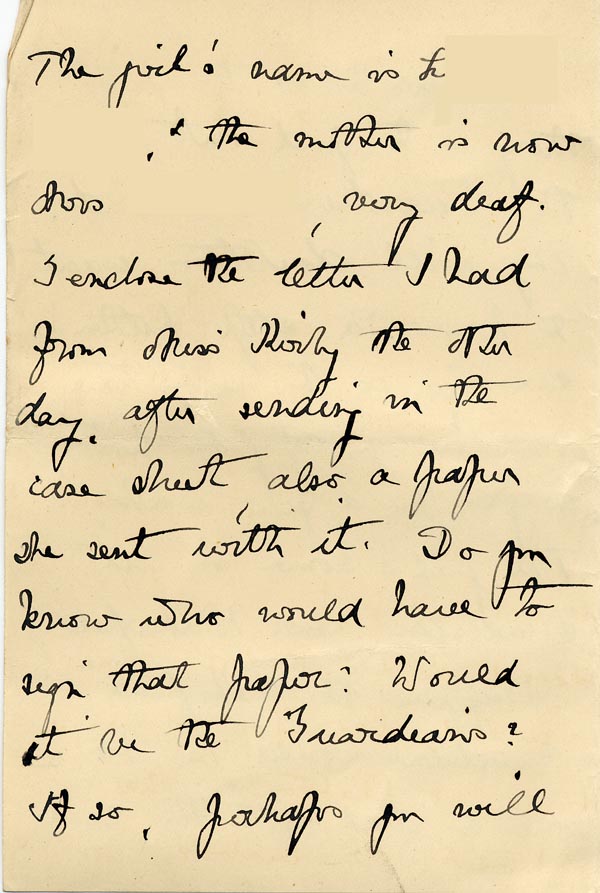 The girl's name is
, & the mother is now
Mrs , very deaf.
I enclose the letter I had
from Miss Kirby the other
day, after sending in the
case sheet, also a paper
she sent with it. Do you
know who would have to
sign that paper? Would
it be the Guardians?
If so, perhaps you will